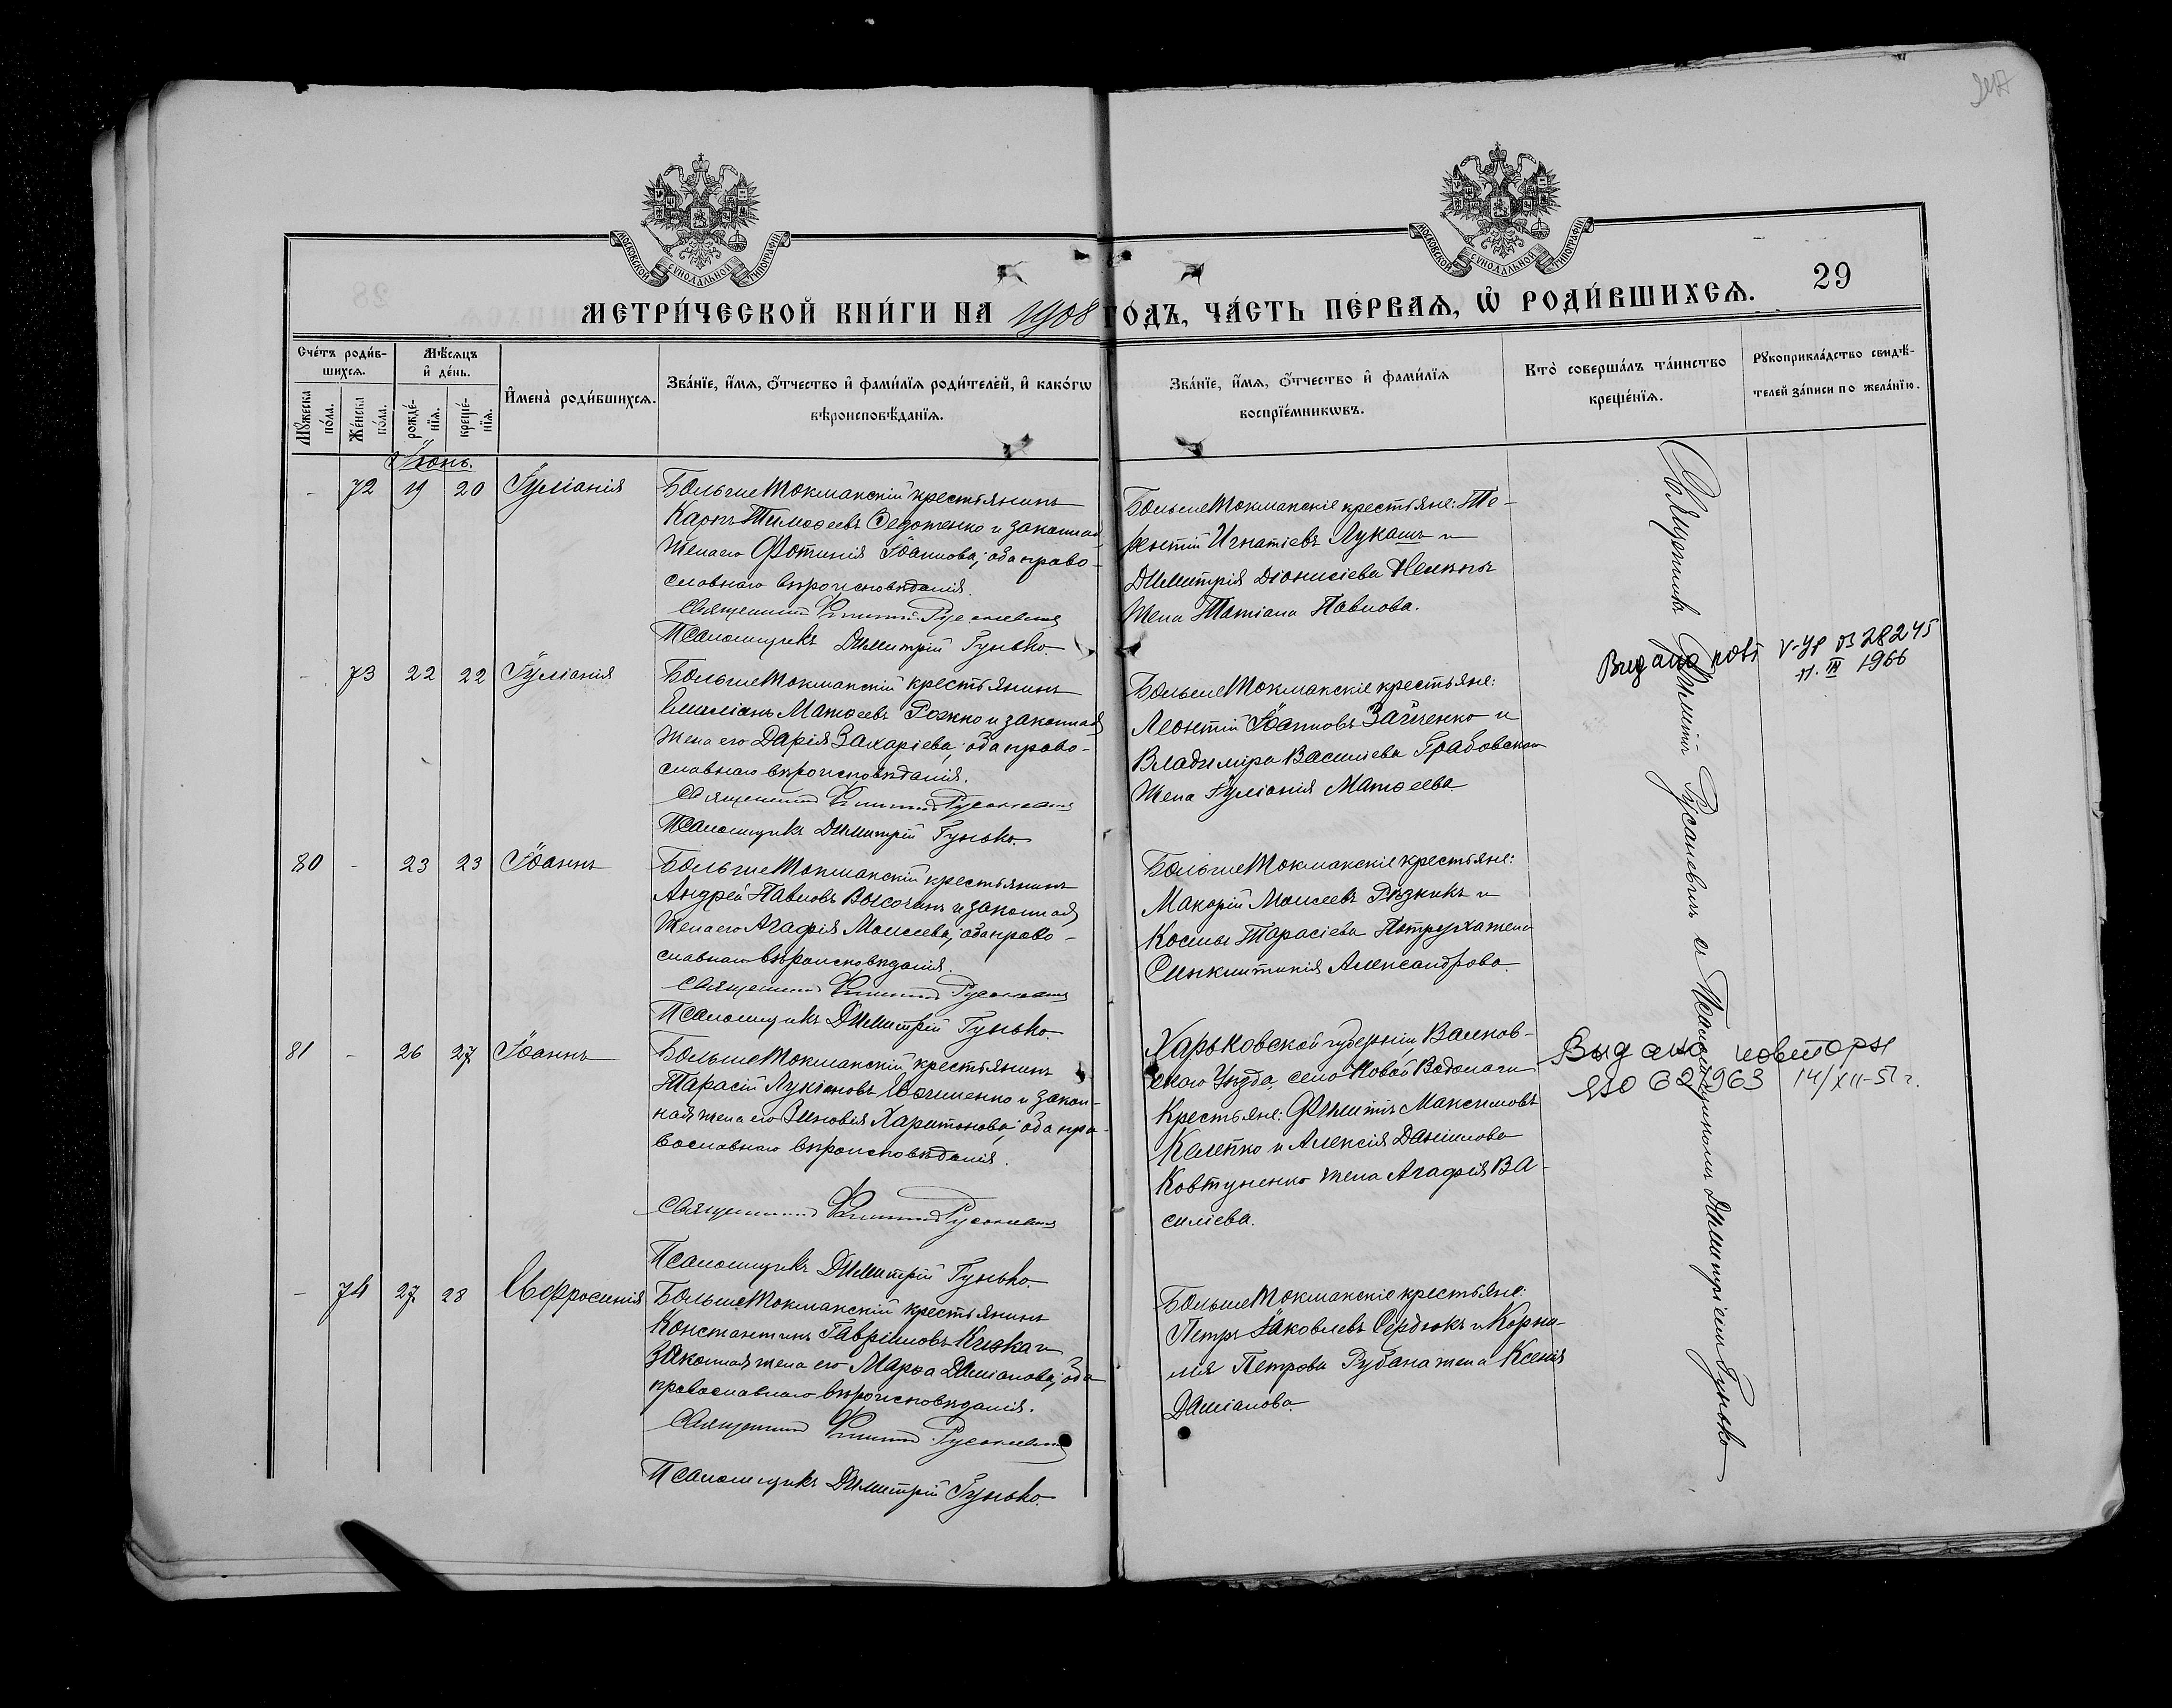 МОСКОВСКОЙ СѴНОДАЛЬНОЙ ТИПОГРАФІИ
МОСКОВСКОЙ СѴНОДАЛЬНОЙ ТИПОГРАФІИ
29
МЕТРИ́ЧЕСКОЙ КНИ́ГИ НА 1908 ГО́ДЪ, ЧА́СТЬ ПЕ́РВАѦ, Ѡ҆ РОДИ́ВШИХСѦ.
Сче́тъ роди́в-
шихсѧ.
Мꙋ́жеска по́ла.
Же́нска по́ла.
Мѣ́сѧцъ
и҆ де́нь.
рожде́-
нїѧ.
креще́-
нїѧ.
И҆мена̀ роди́вшихсѧ.
Зва́нїе, и҆́мѧ, ѻ҆́тчество и҆ фами́лїѧ роди́телей, и҆ како́гѡ
вѣроисповѣ́данїѧ.
Зва́нїе, и҆́мѧ, ѻ҆́тчество и҆ фами́лїѧ
воспрїе́мникѡвъ.
Кто̀ соверша́лъ та́инство
креще́нїѧ.
Рꙋкоприкла́дство свидѣ́-
телей за́писи по жела́нїю.
Іюнь.
- 72 19 20 Іуліанія
Большетокмакскій крестьянинъ
Карпъ Тимоѳеевъ Ѳедотенко и законная
жена его Фотинія Іоаннова; оба право-
славнаго вѣроисповѣданія.
Священникъ Филиппъ Русаневичъ
Псаломщикъ Димитрій Гунько
Большетокмакскіе крестьяне: Те-
рентій Игнатіевъ Лукашъ и
Димитрія Діонисіева
жена Татіана Павлова.
- 73 22 22 Іуліанія
Большетокмакскій крестьянинъ
Емиліанъ Матѳеевъ Рожко и законная
жена его Дарія Захаріева; оба право-
славнаго вѣроисповѣданія.
Священникъ Филиппъ Русаневичъ
Псаломщикъ Димитрій Гунько.
Большетокмакскіе крестьяне:
Леонтій Іоанновъ Зайченко и
Владиміра Василіева Грабовскаго
жена Іуліанія Матѳеева.
Видано повт V-УР 0328245
п. III 1966
80 - 23 23 Іоаннъ
Большетокмакскій крестьянинъ
Андрей Павловъ Височинъ и законная
жена его Агафія Моисеева; оба право-
славнаго вѣроисповѣданія.
Священникъ Филиппъ Русаневичъ
Псаломщикъ Димитрій Гунько.
Большетокмакскіе крестьяне:
Макарій Моисеевъ Рѣзникъ и
Космы Тарасіева Петруха жена
Синклитикія Александрова.
81 - 26 27 Іоаннъ
Большетокмакскій крестьянинъ
Тарасій Лукіановъ Евтушенко и закон-
ная жена его Зиновія Харитонова; оба пра-
вославнаго вѣроисповѣданія.
Священникъ Филиппъ Русаневичъ
Псаломщикъ Димитрій Гунько.
Харьковской губерніи Валков-
скаго уѣзда, село Новой Водолаги
крестьяне: Филиппъ Максимовъ
и Алексія Даніилова
Ковтуненко жена Агафія Ва-
силіева.
Видано повторн
ЯЮ 621963 14/XII-51 г.
- 74 27 28 Евфросинія
Большетокмакскій крестьянинъ
Константинъ Гавріиловъ и
законная жена его Марѳа Даміанова; оба
православнаго вѣроисповѣданія.
Священникъ Филиппъ Русаневичъ
Псаломщикъ Димитрій Гунько.
Большетокмакскіе крестьяне:
Петръ Іаковлевъ Сердюкъ и Корни-
лія Петрова Рубана жена Ксенія
Даміанова.
Священникъ Филиппъ Русаневичъ съ Псаломщикомъ Димитріемъ Гунько